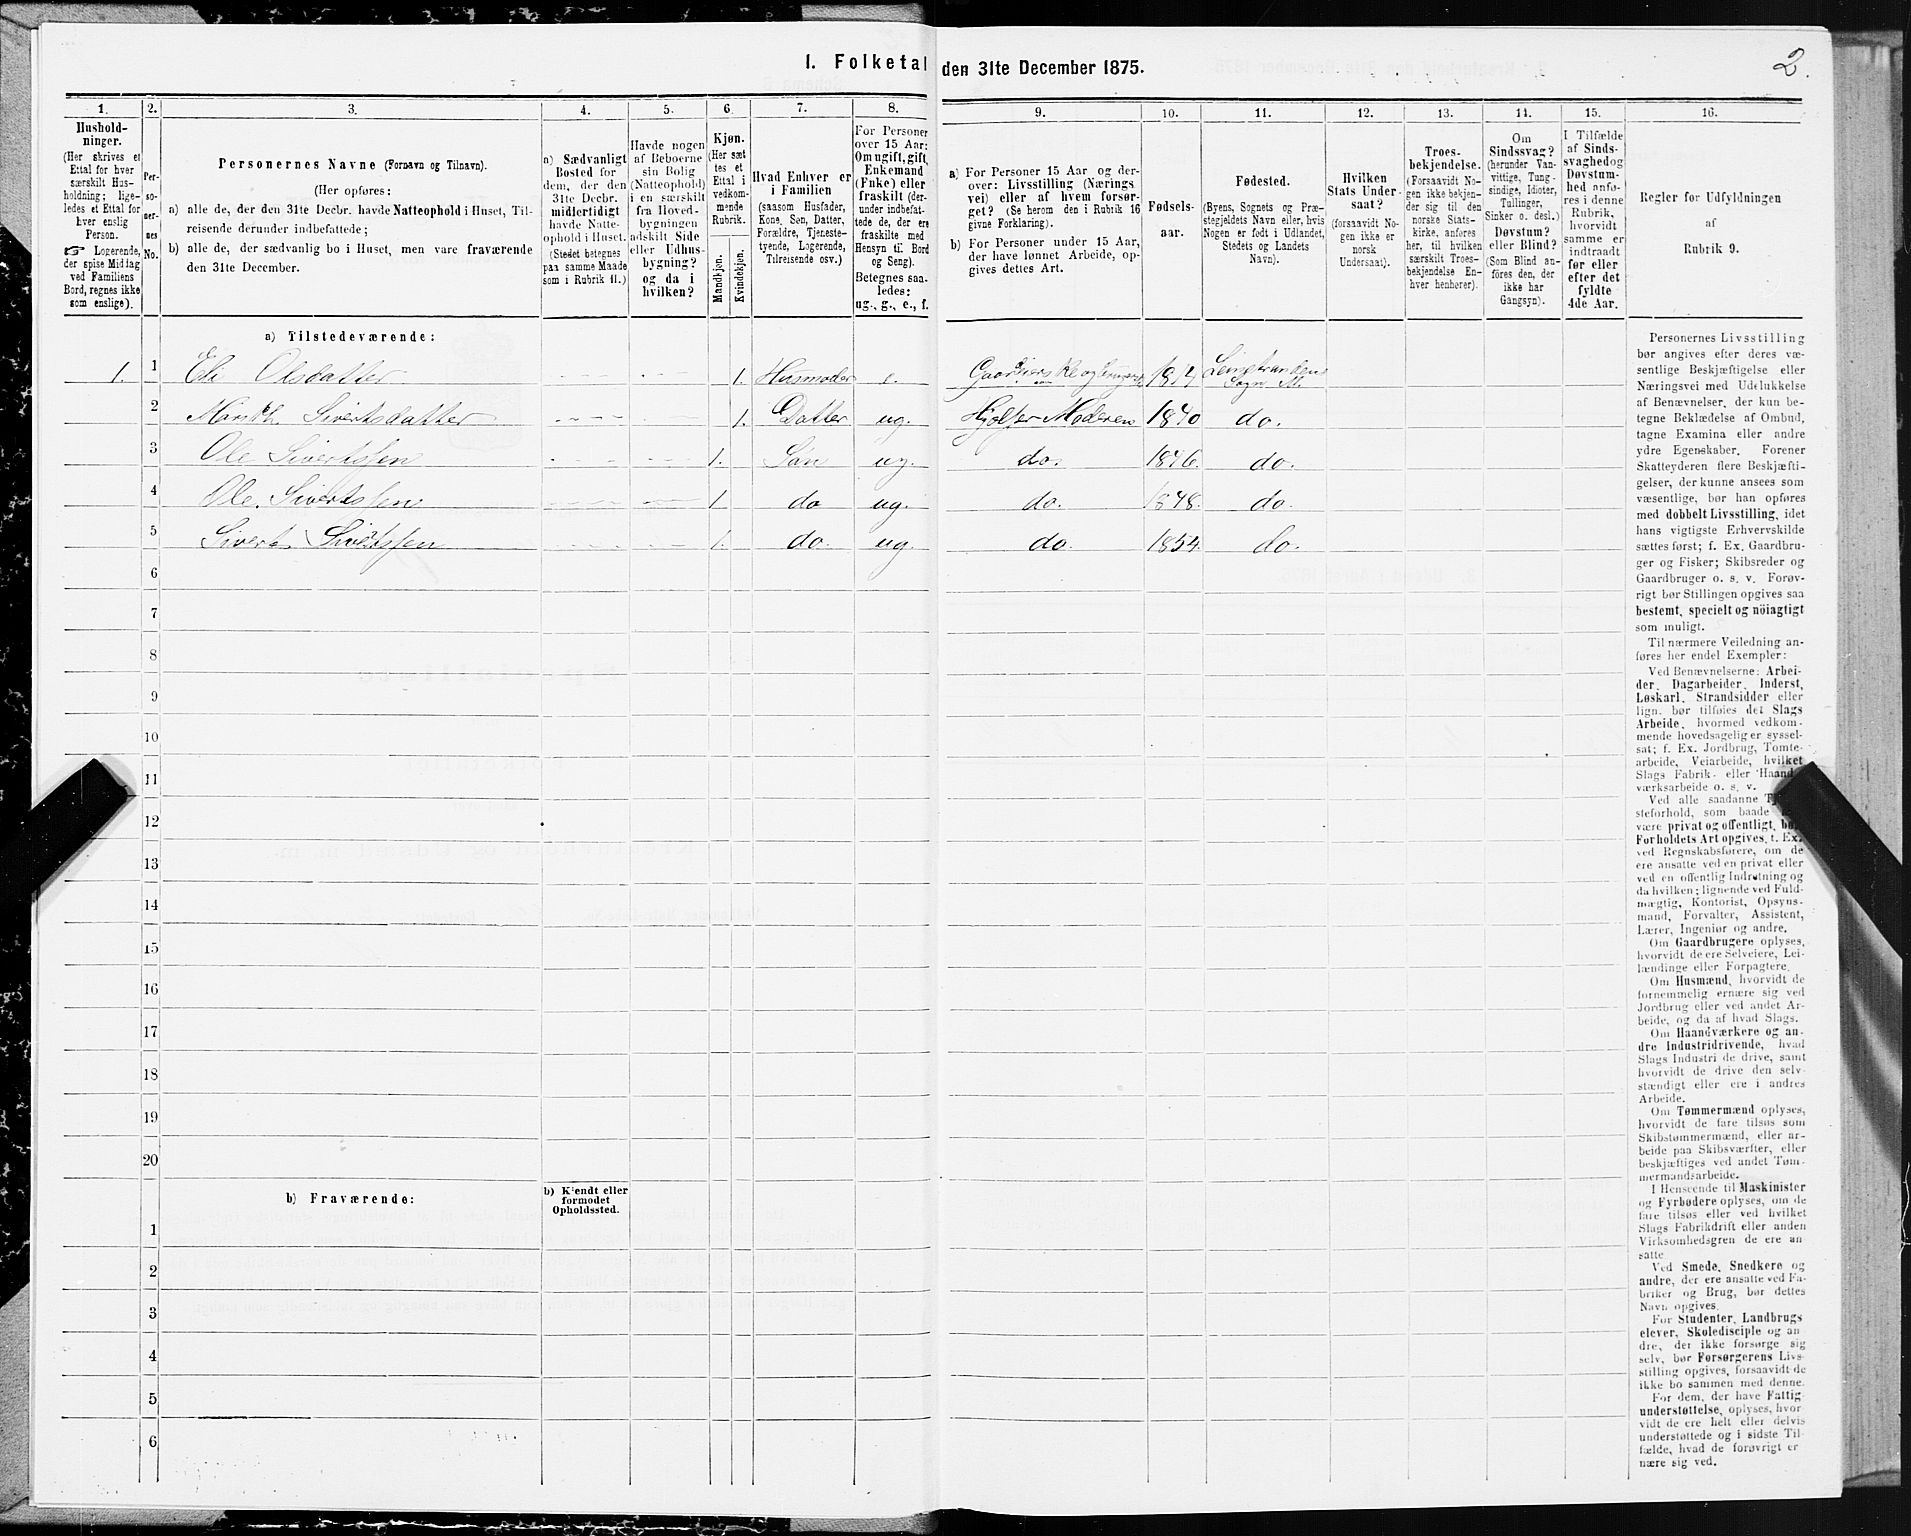 1. Folketal den 31te December 1875.
2.
1.
Hushold-
ninger.
(Her skrives et
Ettal for hver
særskilt Hus-
holdning; lige-
ledes et Ettal for
hver enslig
Person.
☞ Logerende,
der spise Middag
ved Familiens
Bord, regnes ikke
som enslige).
2.
Per-
so-
ner-
nes
No.
3.
Personernes Navne (Fornavn og Tilnavn).
(Her opføres:
a) alle de, der den 31te Decbr. havde Natteophold i Huset, Til-
reisende derunder indbefattede;
b) alle de, der sædvanlig bo i Huset, men vare fraværende
den 31te December.
4.
a) Sædvanligt
Bosted for
dem, der den
31te Decbr.
midlertidigt
havde Natte-
ophold i Huset.
(Stedet betegnes
paa samme Maade
som i Rubrik 11.)
5.
Havde nogen
af Beboerne
sin Bolig
(Natteophold)
i en særskilt
fra Hoved-
bygningen
adskilt Side
eller Udhus-
bygning?
og da i
hvilken?
6.
Kjøn.
(Her sæt
tes et
Ettal i
vedkom-
mende
Rubrik.
Mandkjøn.
Kvindekjøn.
7.
Hvad Enhver er
i Familien
(saasom Husfader,
Kone, Søn, Datter,
Forældre, Tjeneste-
tyende, Logerende,
Tilreisende osv.)
8.
For Personer
over 15 Aar:
Om ugift, gift,
Enkemand
(Enke) eller
fraskilt (der-
under indbefat-
tede de, der ere
fraskilte med
Hensyn til Bord
og Seng).
Betegnes saa-
ledes:
ug., g., e., f.
9.
a) For Personer 15 Aar og der-
over: Livsstilling (Nærings
vei) eller af hvem forsør-
get? (Se herom den i Rubrik 16
givne Forklaring).
b) For Personer under 15 Aar,
der have lønnet Arbeide, op-
gives dettes Art.
10.
Fødsels-
aar.
11.
Fødested.
(Byens, Sognets og Præ-
stegjeldets Navn eller, hvis
Nogen er født i Udlandet,
Stedets og Landets
Navn).
12.
Hvilken
Stats Under-
saat?
(forsaavidt No-
gen ikke er
norsk
Undersaat).
13.
Troes-
bekjendelse.
(Forsaavidt No-
gen ikke bekjen-
der sig til den
norske Stats-
kirke, anføres
her, til hvilken
særskilt Troes-
bekjendelse En-
hver henhører).
14.
Om
Sindssvag?
(herunder Van-
vittige, Tung-
sindige, Idioter,
Tullinger,
Sinker o. desl.)
Døvstum?
eller Blind?
(Som Blind an-
føres den, der
ikke har
Gangsyn).
15.
I Tilfælde
af Sinds-
svaghed og
Døvstum-
hed anfø-
res i denne
Rubrik,
hvorvidt
samme er
indtraadt
før eller
efter det
fyldte
4de Aar.
16.
Regler for Udfyldningen
af
Rubrik 9.
a) Tilstedeværende:
1. 1 Eli Olsdatter 1. Husmoder e. 1814 Leinstrandens Sogn
2 Marith Sivertsdatter 1. Datter ug. Hjelper Moderen 1840 do.
3 Ole Sivertssen 1. Søn ug. do. 1846. do.
4 Ole Sivertssen 1 do ug. do. 1848. do.
5 Sivert Sivertssen 1. do. ug. do. 1854. do.
6
7
8
9
10
11
12
13
14
15
16
17
18
19
20
b) Fraværende:
b) Kjendt eller
formodet
Opholdssted.
1
2
3
4
5
6
Personernes Livsstilling
bør angives efter deres væ-
sentlige Beskjæftigelse eller
Næringsvei med Udelukkelse
af Benævnelser, der kun be-
tegne Beklædelse af Ombud,
tagne Examina eller andre
ydre Egenskaber. Forener
Skatteyderen flere Beskjæfti-
gelser, der kunne ansees som
væsentlige, bør han opføres
med dobbelt Livsstilling, idet
hans vigtigste Erhvervskilde
sættes først; f. Ex. Gaardbru-
ger og Fisker; Skibsreder og
Gaardbruger o. s. v. Forøv-
rigt bør Stillingen opgives saa
bestemt, specielt og nöiagtigt
som muligt.
Til nærmere Veiledning an-
føres her endel Exempler:
Ved Benævnelserne: Arbei-
der, Dagarbeider, Inderst,
Løskarl, Strandsidder eller
lign. bør tilføies det Slags
Arbeide, hvormed vedkom-
mende hovedsagelig er syssel-
sat; f. Ex. Jordbrug, Tomte-
arbeide, Veiarbeide, hvilket
Slags Fabrik- eller Haand-
værksarbeide o. s. v.
Ved alle saadanne
steforhold, som baade
være privat og offentligt, bør
Forholdets Art opgives, t. Ex.
ved Regnskabsførere, om de
ere ansatte ved en privat eller
ved en offentlig Indretning og
da hvilken; lignende ved Fuld-
mægtig, Kontorist, Opsyns-
mand, Forvalter, Assistent,
Lærer, Ingeniør og andre.
Om Gaardbrugere oplyses,
hvorvidt de ere Selveiere, Lei-
lændinge eller Forpagtere.
Om Husmænd, hvorvidt de
fornemmelig ernære sig ved
Jordbrug eller ved andet Ar-
beide, og da af hvad Slags.
Om Haandværkere og an-
dre Industridrivende, hvad
Slags Industri de drive, samt
hvorvidt de drive den selv-
stændigt eller ere i andres
Arbeide.
Om Tømmermænd oplyses,
hvorvidt de fare tilsøs som
Skibstømmermænd, eller ar-
beide paa Skibsværfter, eller
beskjæftiges ved andet Tøm-
mermandsarbeide.
I Henseende til Maskinister
og Fyrbødere oplyses, om de
fare tilsøs eller ved hvilket
Slags Fabrikdrift eller anden
Virksomhedsgren de ere an-
satte
Ved Smede, Snedkere og
andre, der ere ansatte ved Fa-
briker og Brug, bør dettes
Navn opgives.
For Studenter, Landbrugs
elever, Skoledisciple og an
dre, der ikke forsørge sig
selv, bør Forsørgerens Livs-
stilling opgives, forsaavidt de
ikke bo sammen med denne.
For dem, der have Fattig-
understøttelse, oplyses, hvor-
vidt de ere helt eller delvis
understøttede og i sidste Til-
fælde, hvad de forøvrigt er
nære sig ved.